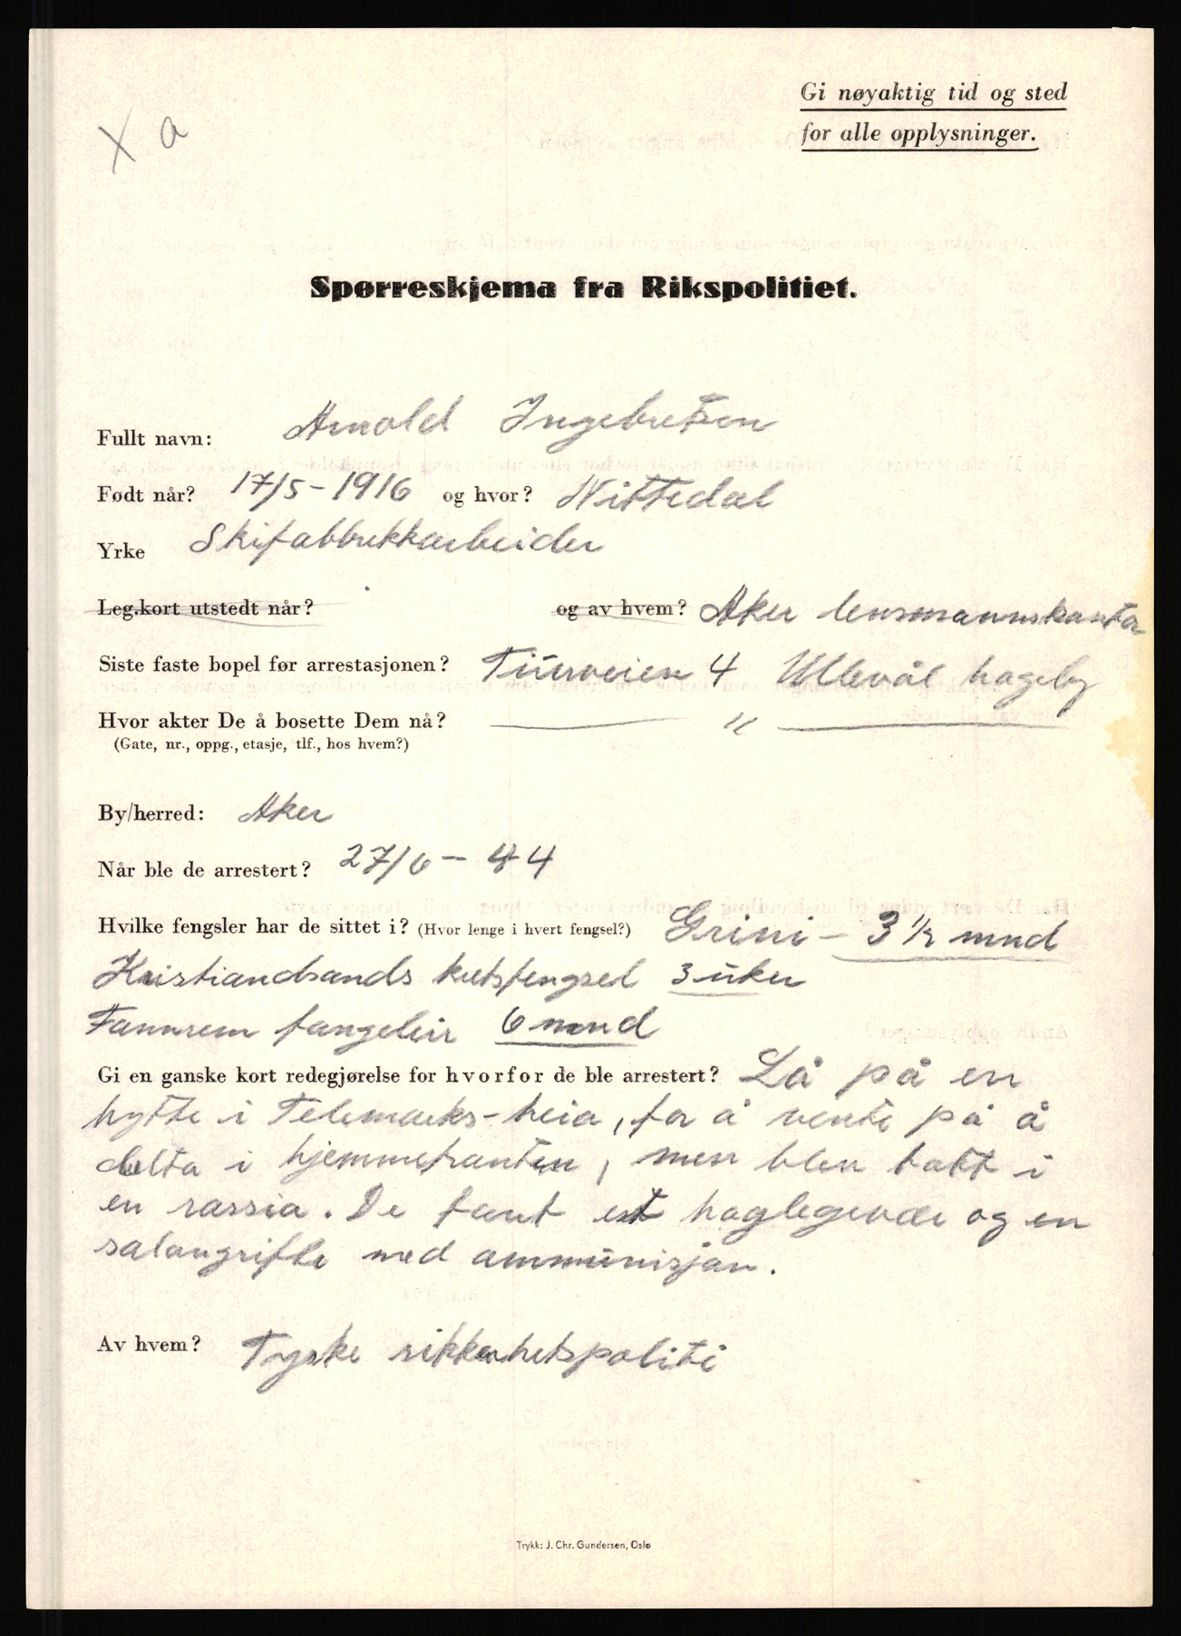 Gi nøyaktig tid og sted
for alle opplysninger.
X a
Spørreskjema fra Rikspolitiet.
Fullt navn: Arnold Ingebretsen
Født når? 17/5-1916 og hvor? Nittedal
Yrke Skifabbrikkarbeider
Leg.kort utstedt når? og av hvem? Aker lensmannskontor
Siste faste bopel før arrestasjonen? Tüirveien 4 Ullevål hageby
Hvor akter De å bosette Dem nå? — " —
(Gate, nr., oppg., etasje, tlf., hos hvem?)
By/herred: Aker
Når ble de arrestert? 27/6 - 44
Hvilke fengsler har de sittet i? (Hvor lenge i hvert fengsel?) Grini - 3 1/2 mnd
Kristiandsands kretsfengsel 3 uker
Fannrem fangeleir 6 mnd
Gi en ganske kort redegjørelse for hvorfor de ble arrestert? Lå på en
hytte i Telemarks-heia, for å vente på å
delta i hjemmefronten, men blev tatt i
en rassia. De fant et haglegevær og en
salongrifle med ammunisjon.
Av hvem? Tyske sikkerhetspoliti
Trykk: J. Chr. Gundersen, Oslo